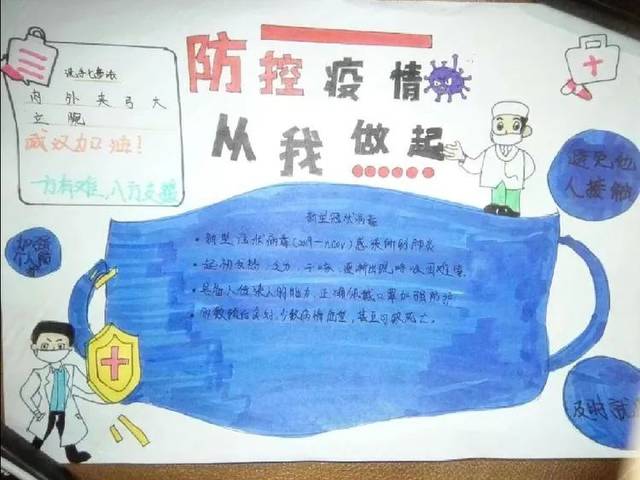 防控疫情
从我做起
洗手七步法
内 外 夹 弓 大
立 腕
武汉加油！
一方有难，八方支援
避免他
人接触
加强
个人防
新型冠状病毒
新型冠状病毒(2019-nCoV)感染所的肺炎
起初发热、乏力、干咳、逐渐出现呼吸困难等.
具备人传染人的能力，正确佩戴口罩加强防护
多数预后良好，少数病情危重，甚至可致死亡。
及时